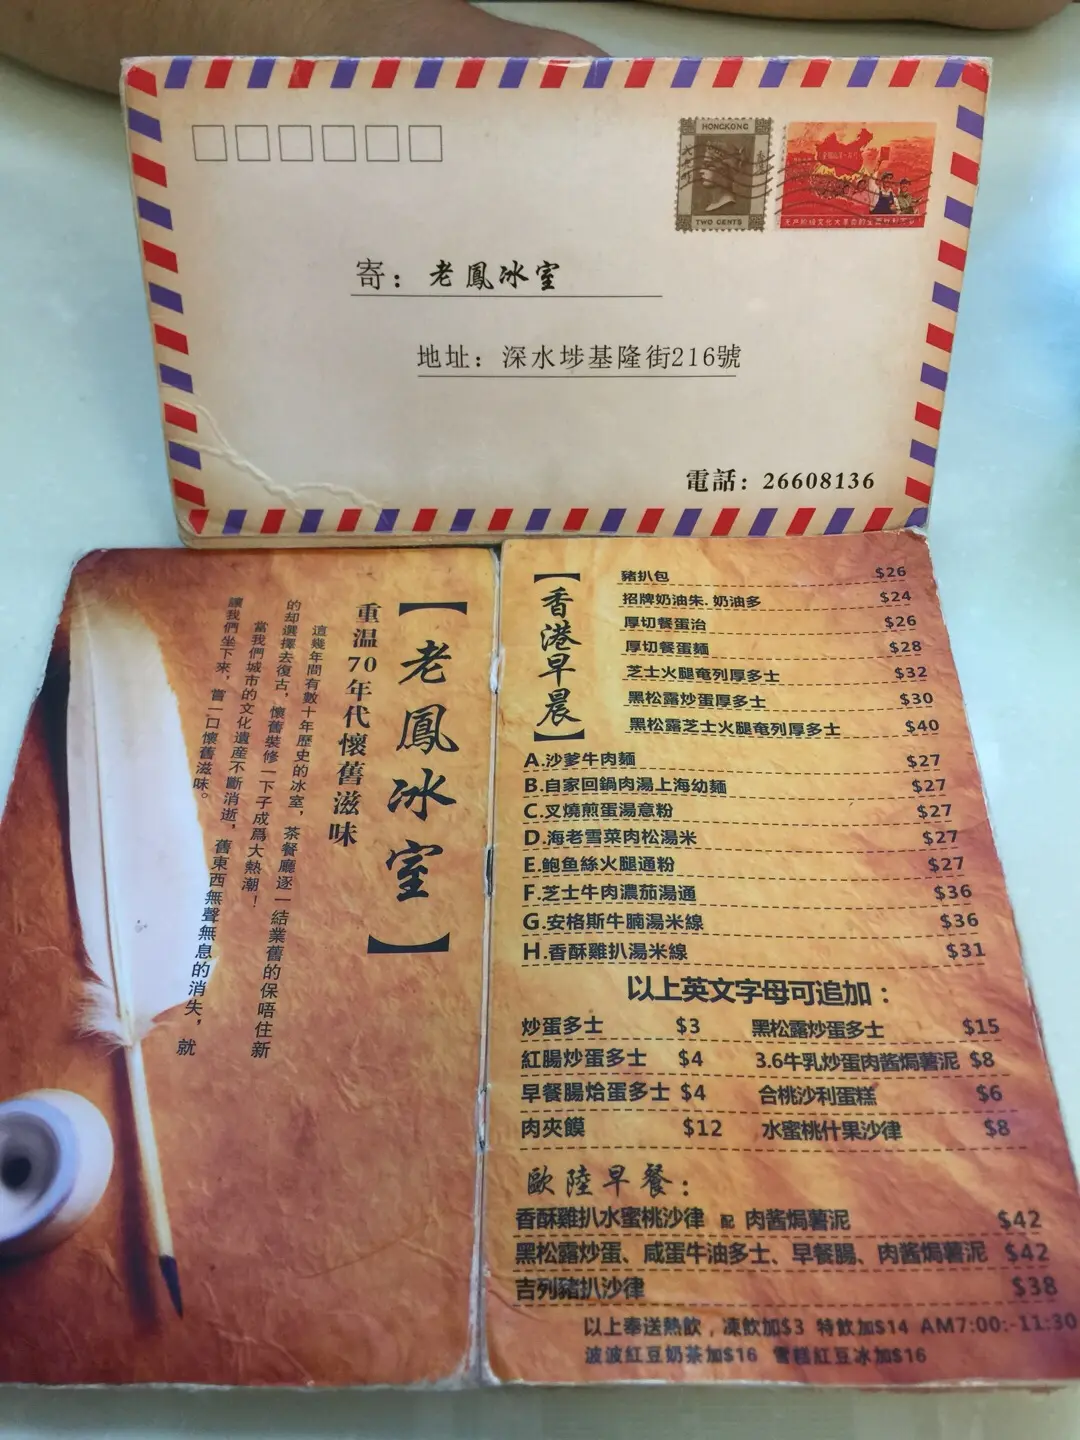 HONGKONG
TWO CENTS
寄：老鳳冰室
地址：深水埗基隆街216號
電話：26608136
【老鳳冰室】
重温70年代懷舊滋味
這幾年間有數十年歷史的冰室，茶餐廳逐一結業舊的保唔住新
的却選擇去復古，懷舊裝修一下子成爲大熱潮！
當我們城市的文化遺産不斷消逝，舊東西無聲無息的消失，就
讓我們坐下來，嘗一口懷舊滋味。
【香港早晨】
豬扒包 $26
招牌奶油朱.奶油多 $24
厚切餐蛋治 $26
厚切餐蛋麵 $28
芝士火腿奄列厚多士 $32
黑松露炒蛋厚多士 $30
黑松露芝士火腿奄列厚多士 $40
A.沙爹牛肉麵 $27
B.自家回鍋肉湯上海幼麵 $27
C.叉燒煎蛋湯意粉 $27
D.海老雪菜肉松湯米 $27
E.鮑鱼絲火腿通粉 $27
F.芝士牛肉濃茄湯通 $36
G.安格斯牛腩湯米線 $36
H.香酥雞扒湯米線 $31
以上英文字母可追加：
炒蛋多士 $3 黑松露炒蛋多士 $15
紅腸炒蛋多士 $4 3.6牛乳炒蛋肉酱焗薯泥 $8
早餐腸烚蛋多士 $4 合桃沙利蛋糕 $6
肉夾饃 $12 水蜜桃什果沙律 $8
歐陸早餐：
香酥雞扒水蜜桃沙律 配 肉酱焗薯泥 $42
黑松露炒蛋、咸蛋牛油多士、早餐腸、肉酱焗薯泥 $42
吉列豬扒沙律 $38
以上奉送熱飲，凍飲加$3 特飲加$14 AM7:00:-11:30
波波紅豆奶茶加$16 雪糕紅豆冰加$16